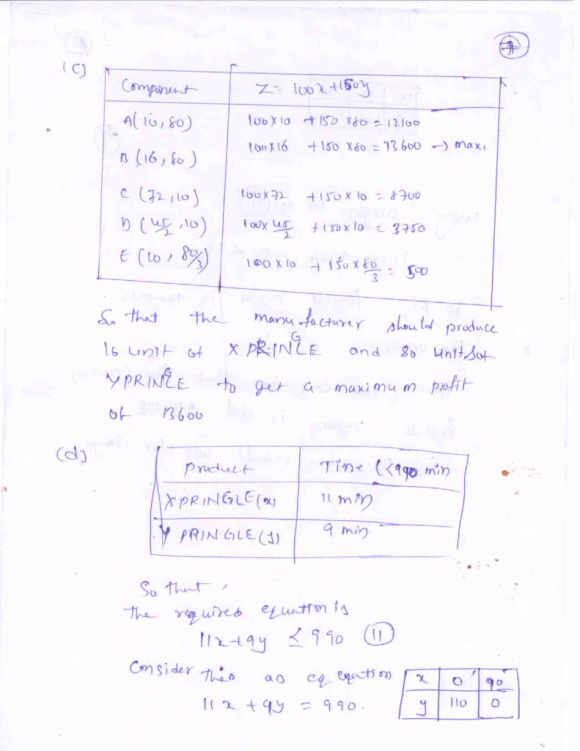 1C)
Component Z = 100x + 150y
A(10, 80) 100x10 + 150 x80 = 12100
B (16, 80) 100x16 + 150 x80 = 13600 → max,
C (72, 10) 100x72 + 150 x 10 = 8700
D (45/2, 10) 100x 45/2 + 150x10 = 3750
E (10, 80/3) 100 x 10 + 150 x 80/3 = 500
So that the manufacturer should produce
16 unit of X PRINGLE and 80 units of
YPRINGLE to get a maximum profit
of 13600
(d)
Product Time (<990 min
XPRINGLE(x) 11 min
Y PRINGLE(y) 9 min
So that,
the required equation is
11x+9y ≤ 990 (11)
Consider this as eq equation
11x + 9y = 990.
x 0 90
y 110 0